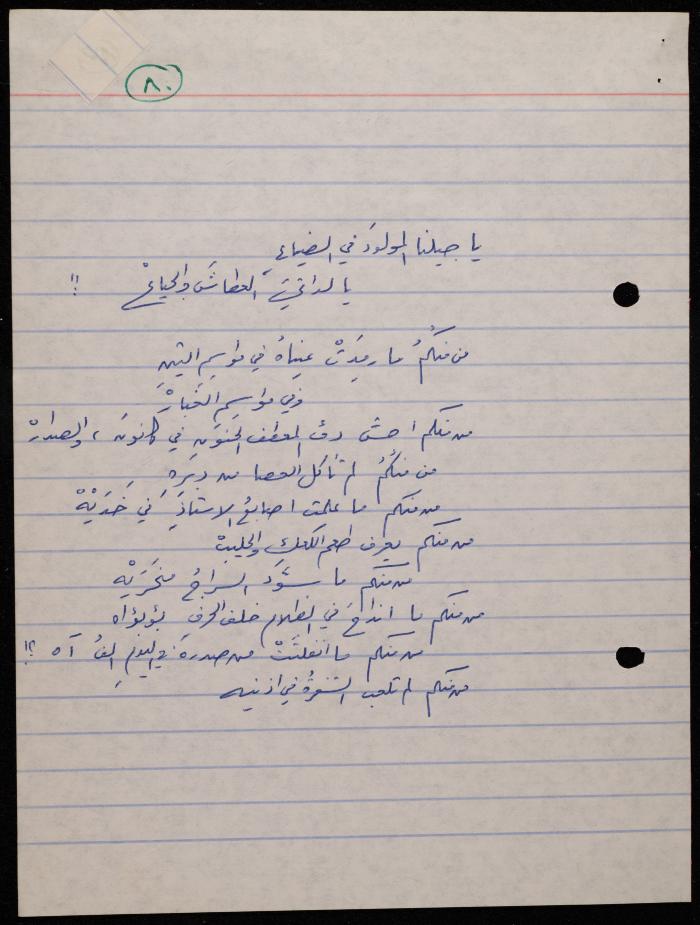 ٨٠
يا جيلنا المولودَ في الضياعِ
يا لداتيَ العطاشَ والجياعْ !!
من منكُمُ ما رمِدَتْ عيناهُ في مواسمِ التينِ
وفي مواسِمِ الغُبارْ
من منكم احسّ دفْ المعطف الحنون في كانونَ ، والصدارْ
من منكُمُ لم تأكل العصا من
من منكم ما علمت اصابعُ الاستاذِ في خدّيْهْ
من منكم يعرف طعم الكعك والحليبْ
من منكم ما سوّد السراجُ منخَريْهِ
من منكم ما انداحَ في الظلام خلف الحرف بؤبؤاه
من منكم ما انفلتَتْ من صدرهِ في اليومِ الفُ آه ؟!
من منكم لم تلعب الشفرةُ في اذنيه